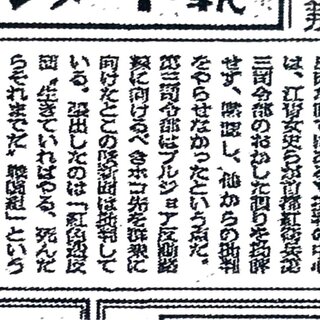 は、江青女史らが首都紅衛兵第
三司令部のおかした誤りを批評
せず、黙認し、他からの批判
をやらせなかったという点だ。
第三司令部はブルジョア反動路
線に向けるべきホコ先を群衆に
向けたとこの壁新聞は批判して
いる。張出したのは「紅色造反
団」生きていればやる、死んだ
らそれまでだ〝戦闘組」という